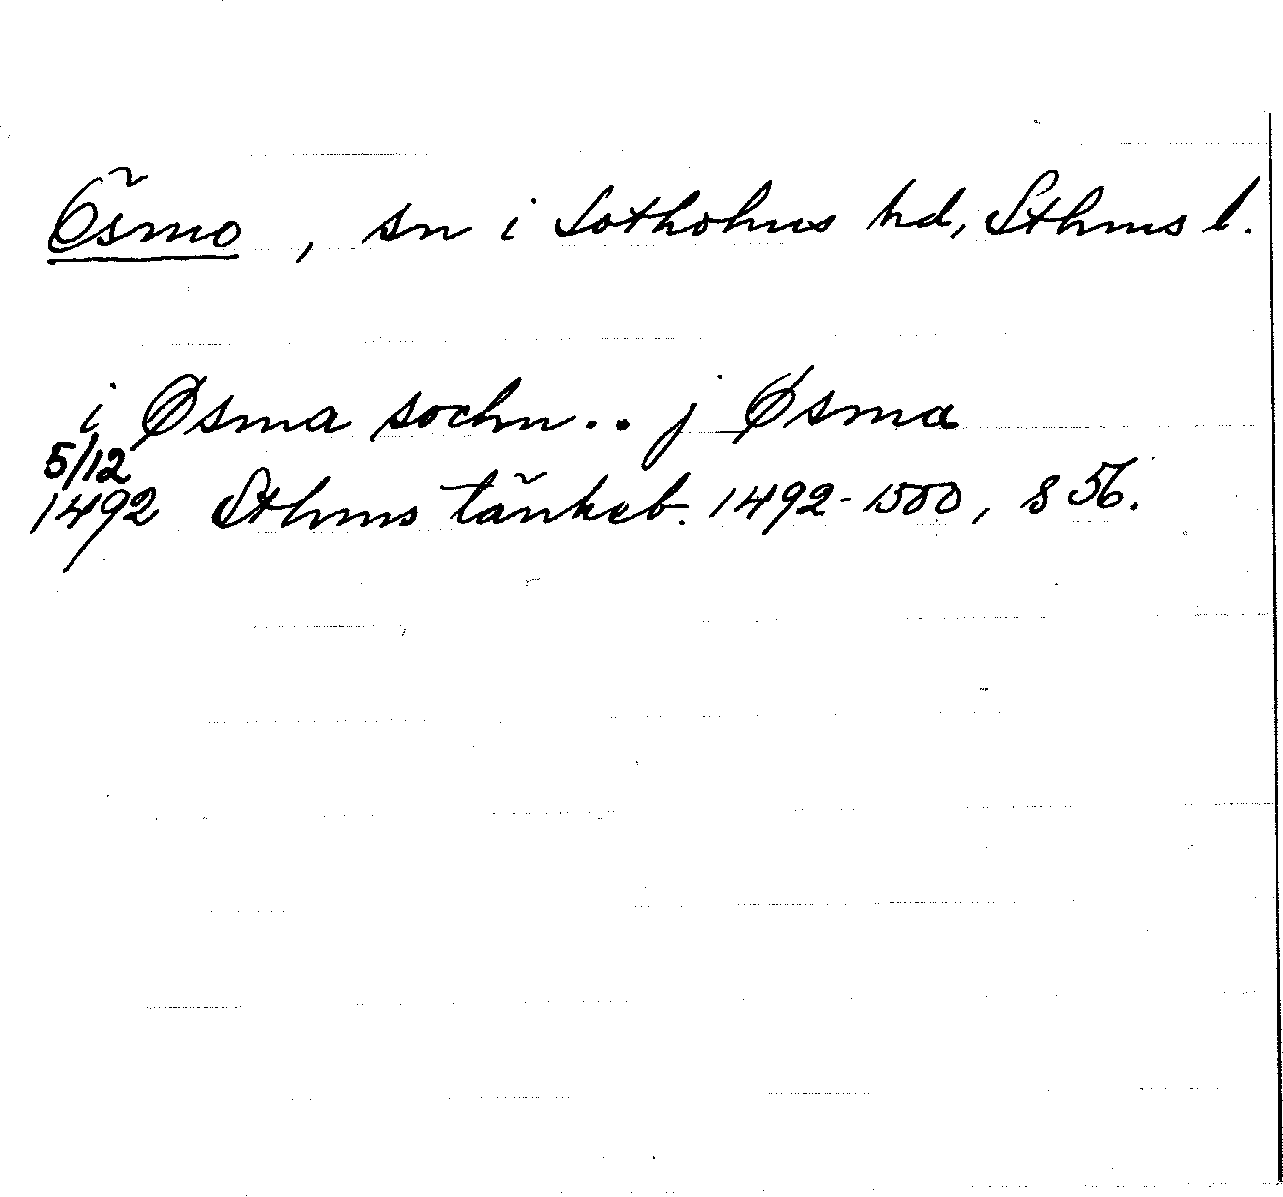 Ösmo, sn i Sotholms hd, Sthms l.
i Øsma sochn.. j Øsma
5/12
1492 Sthms tänkeb. 1492-1500, s 56.